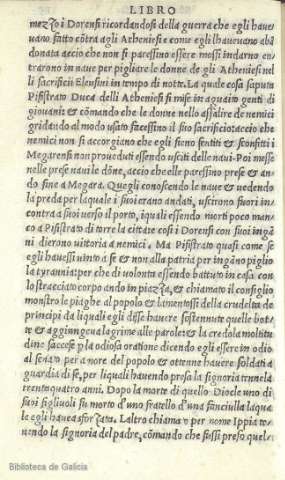 LIBRO
mezzo i Dorensi ricordandosi della guerra che egli haue
uano fatto cōtra gli Atheniesi e come egli l'haueuano abā
donata accio che non si paressino essere mossi indarno en
trarono in naue per pigliare le donne de gli Atheniesi nel
li sacrificii Eleusini in tempo di notte. La qual cosa saputa
Pisistrato Duca delli Atheniesi si mise in aguaito genti di
giouani & cōmando che le donne nello assalire de nemici
gridando al modo usato facessino il suo sacrificio accio che
nemici non si accorgiano che egli sieno sentiti & sconfitti i
Megarensi non proueduti essendo usciti delle naui. Poi messe
nelle prese naui le dōne, accio che elle paressino prese & an
do sine a Megara. Quegli conoscendo le naue & uedendo
la preda per laquale i suoi erano andati, uscirono fuori in
contra a suoi uerso il porto, iquali essendo morti poco man
co a Pisistrato di torre la citta & cosi i Dorensi con suoi ingā
ni dierono uittoria a nemici. Ma Pisistrato quasi come se
egli hauessi uinto a se & non alla patria per ingāno piglio
la tyrannia: per che di uolonta essendo battuto in casa con
lo stracciato corpo ando in piazza, & chiamato il consiglio
monstro le piaghe al popolo & lamentossi della crudelta de
principi da liquali egli disse hauere sostenute quelle botte
& aggiungeua lagrime alle parole & la credola moltitu
dine saccese p la odiosa oratione dicendo egli esser in odio
al senato per amore del popolo & ottenne hauere soldati a
guardia di se, per liquali hauendo presa la signoria tenne la
trentaquatro anni. Dopo la morte di quello Diocle uno di
suoi figliuoli fu morto d'uno fratello d'una fanciulla laqua
le egli hauea sforzata. L'altro chiamato per nome Ippia te
nendo la signoria del padre, cōmando che fussi preso quel
Biblioteca de Galicia